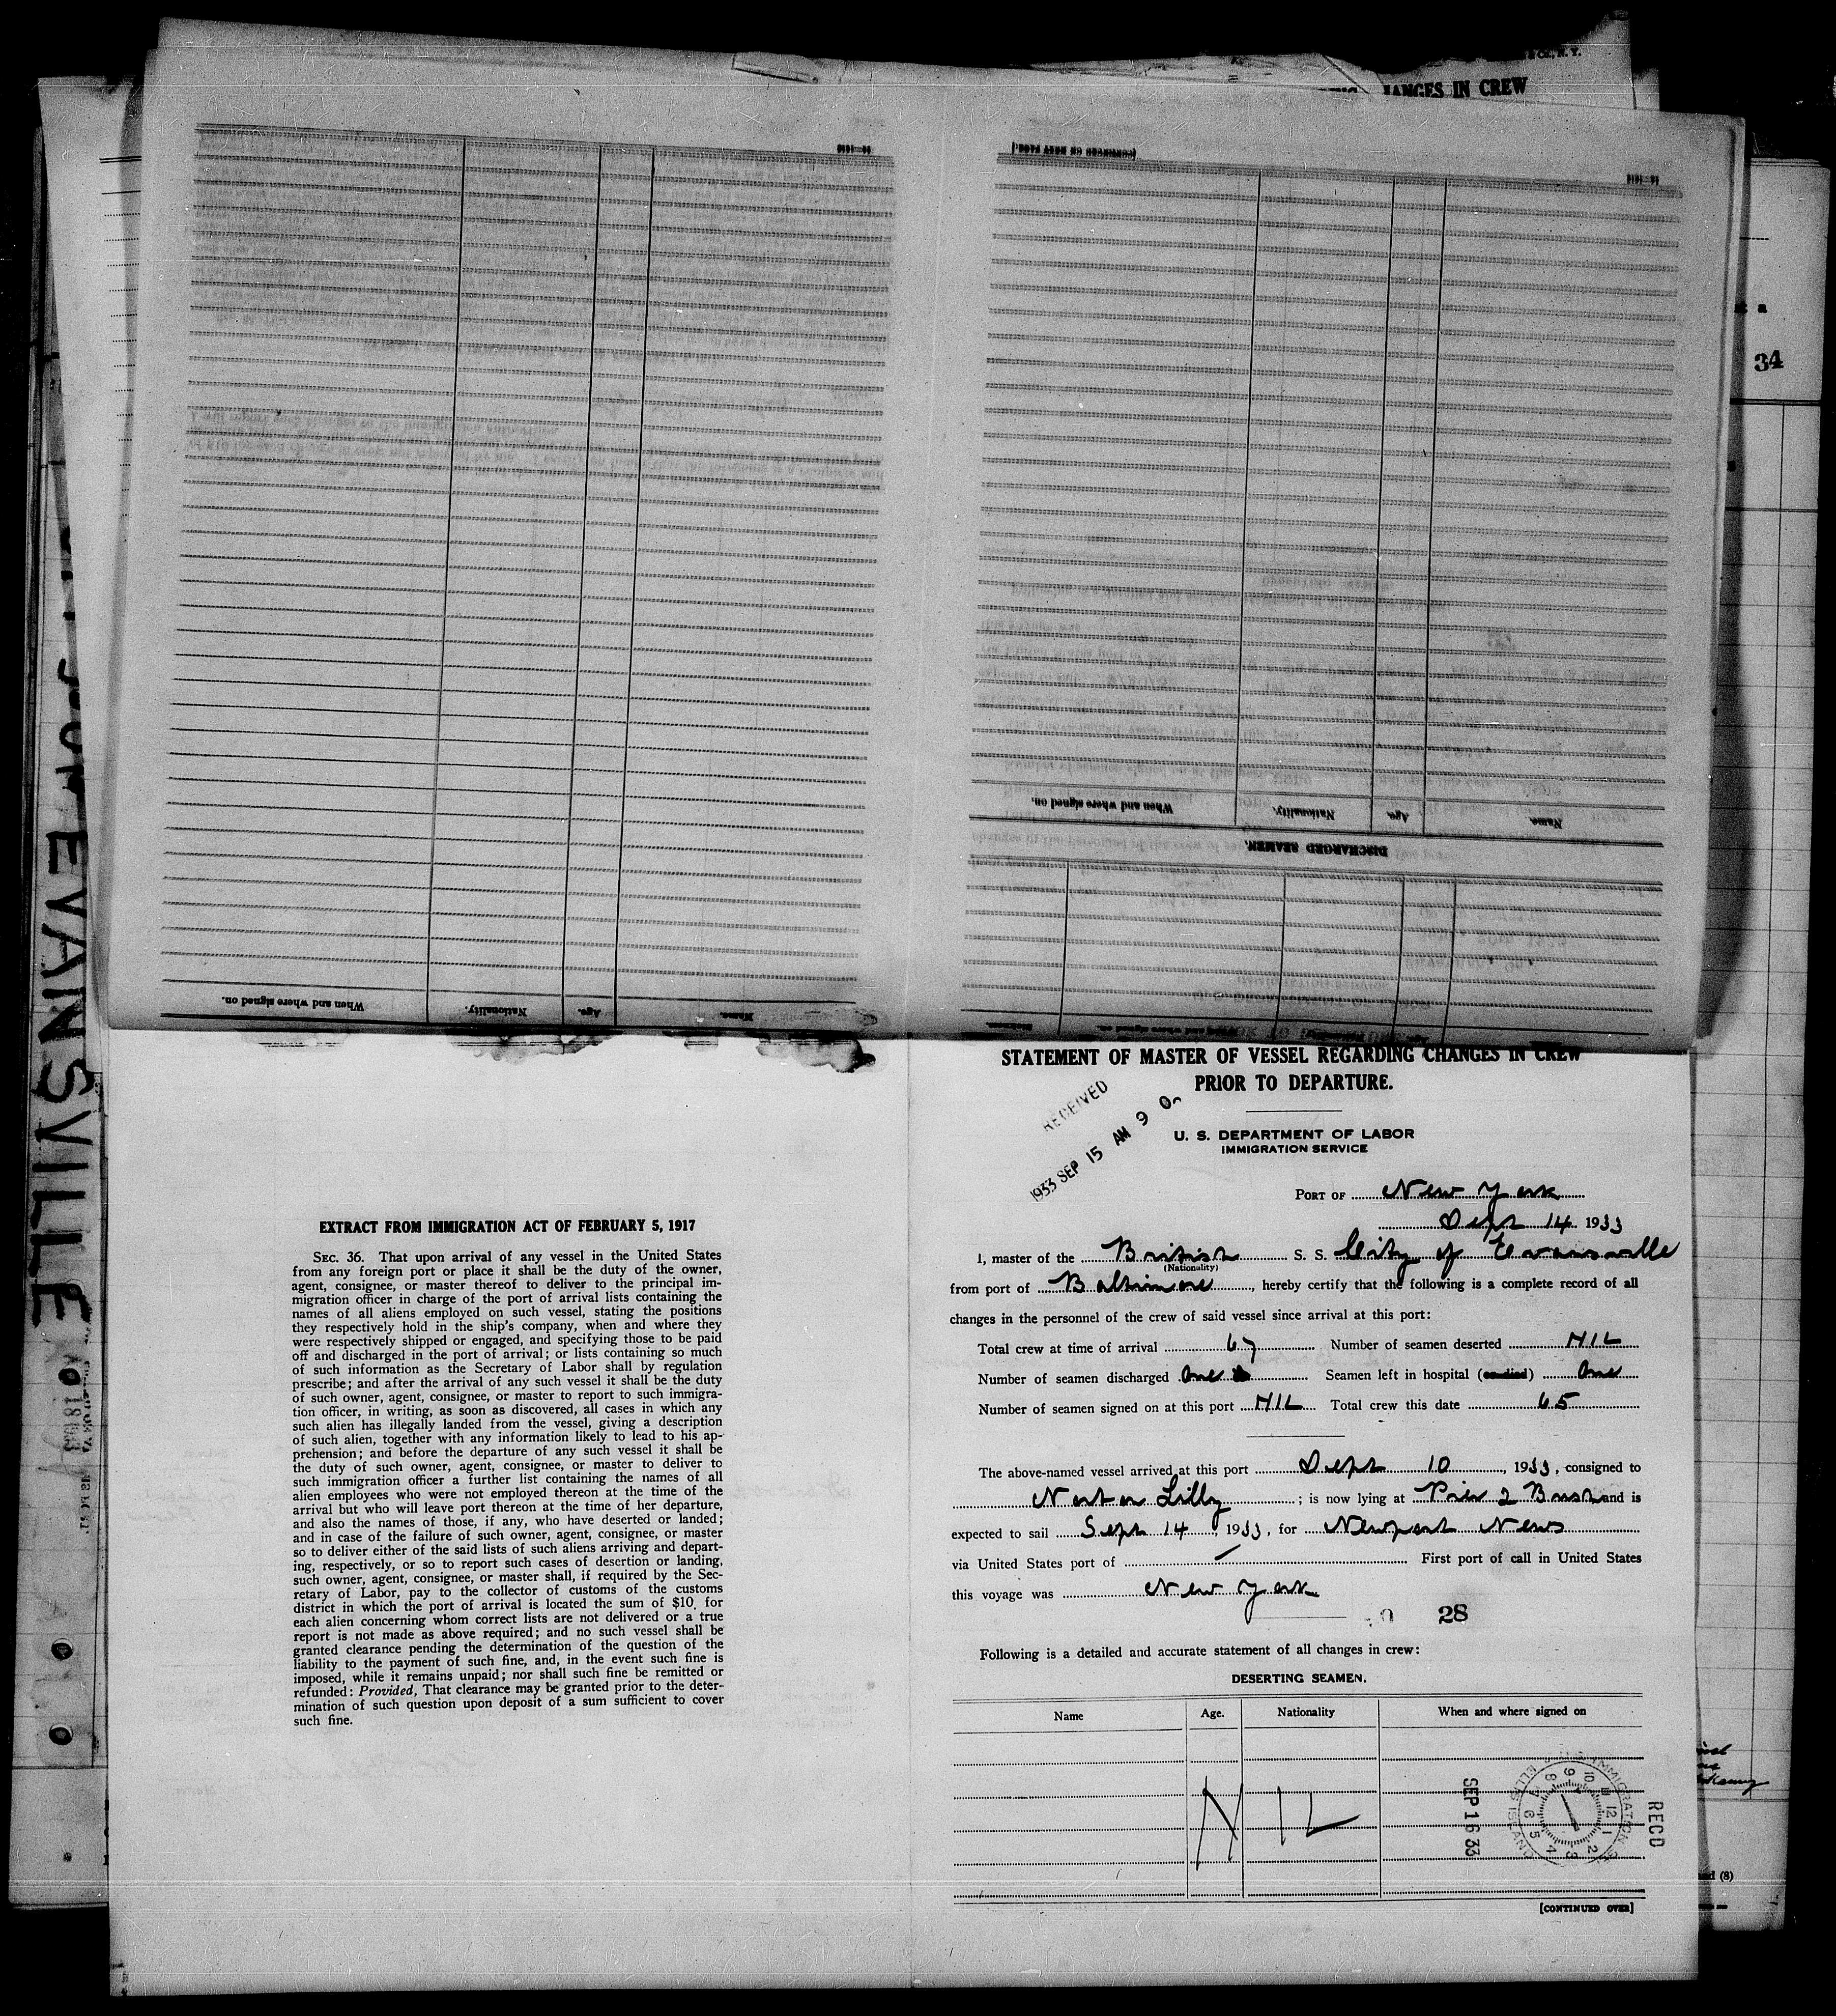 & CO., N. Y.
CHANGES IN CREW
34
[CONTINUED ON NEXT PAGE.]
When and where signed on.
Nationality.
Age.
Name.
DISCHARGED SEAMEN.
When and where signed on.
Nationality.
Age.
Name.
EVANSVILLE
STATEMENT OF MASTER OF VESSEL REGARDING CHANGES IN CREW
PRIOR TO DEPARTURE.
RECEIVED
1933 SEP 15 AM 9
U. S. DEPARTMENT OF LABOR
IMMIGRATION SERVICE
PORT OF New York
Sept 14 1933
I, master of the British S. S. City of Evansville
(Nationality)
from port of Baltimore, hereby certify that the following is a complete record of all
changes in the personnel of the crew of said vessel since arrival at this port:
Total crew at time of arrival 67 Number of seamen deserted NIL
Number of seamen discharged One Seamen left in hospital (or died) One
Number of seamen signed on at this port NIL Total crew this date 65
The above-named vessel arrived at this port Sept 10, 1933, consigned to
Norton Lilly; is now lying at Pier 2 Bush and is
expected to sail Sept 14, 1933, for Newport News
via United States port of / First port of call in United States
this voyage was New York
28
Following is a detailed and accurate statement of all changes in crew:
DESERTING SEAMEN.
Name Age. Nationality When and where signed on
NIL
SEP 16 33
RECD
U. S. IMMIGRATION
ELLIS ISLAND
[CONTINUED OVER]
EXTRACT FROM IMMIGRATION ACT OF FEBRUARY 5, 1917
SEC. 36. That upon arrival of any vessel in the United States
from any foreign port or place it shall be the duty of the owner,
agent, consignee, or master thereof to deliver to the principal im-
migration officer in charge of the port of arrival lists containing the
names of all aliens employed on such vessel, stating the positions
they respectively hold in the ship's company, when and where they
were respectively shipped or engaged, and specifying those to be paid
off and discharged in the port of arrival; or lists containing so much
of such information as the Secretary of Labor shall by regulation
prescribe; and after the arrival of any such vessel it shall be the duty
of such owner, agent, consignee, or master to report to such immigra-
tion officer, in writing, as soon as discovered, all cases in which any
such alien has illegally landed from the vessel, giving a description
of such alien, together with any information likely to lead to his ap-
prehension; and before the departure of any such vessel it shall be
the duty of such owner, agent, consignee, or master to deliver to
such immigration officer a further list containing the names of all
alien employees who were not employed thereon at the time of the
arrival but who will leave port thereon at the time of her departure,
and also the names of those, if any, who have deserted or landed;
and in case of the failure of such owner, agent, consignee, or master
so to deliver either of the said lists of such aliens arriving and depart-
ing, respectively, or so to report such cases of desertion or landing,
such owner, agent, consignee, or master shall, if required by the Sec-
retary of Labor, pay to the collector of customs of the customs
district in which the port of arrival is located the sum of $10 for
each alien concerning whom correct lists are not delivered or a true
report is not made as above required; and no such vessel shall be
granted clearance pending the determination of the question of the
liability to the payment of such fine, and, in the event such fine is
imposed, while it remains unpaid; nor shall such fine be remitted or
refunded: Provided, That clearance may be granted prior to the deter-
mination of such question upon deposit of a sum sufficient to cover
such fine.